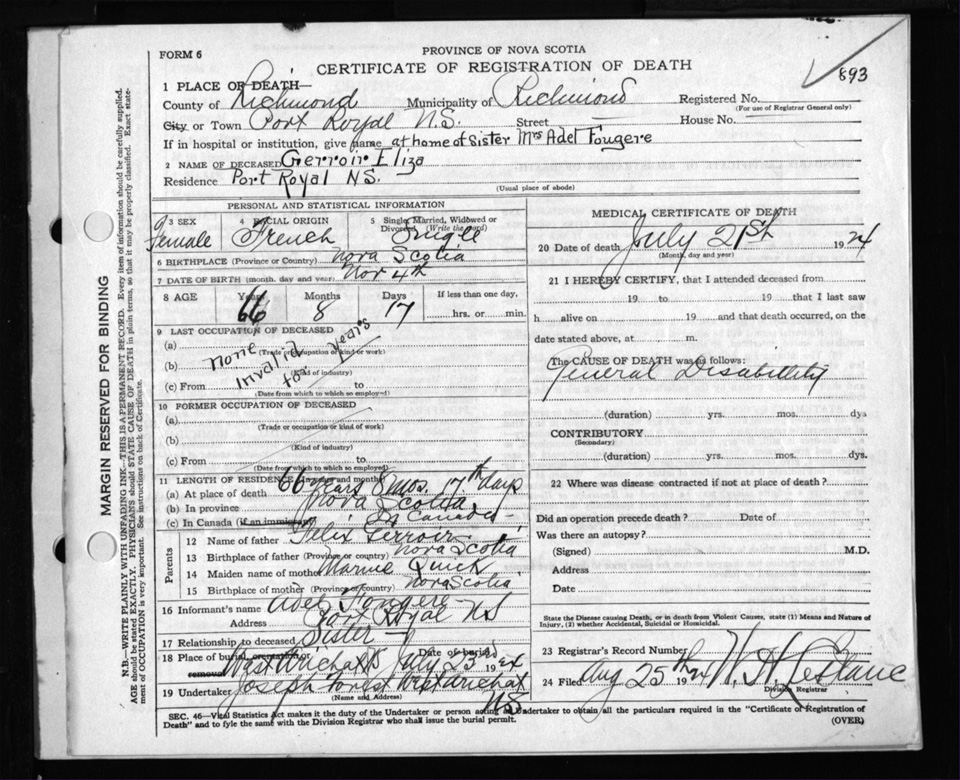 FORM 6
PROVINCE OF NOVA SCOTIA
CERTIFICATE OF REGISTRATION OF DEATH
893
1 PLACE OF DEATH—
County of Richmond Municipality of Richmond Registered No.
(For use of Registrar General only)
City or Town Port Royal N.S. Street — House No.
If in hospital or institution, give name at home of Sister Mrs Adel Fougere
2 NAME OF DECEASED Gerroir Eliza
Residence Port Royal NS.
(Usual place of abode)
PERSONAL AND STATISTICAL INFORMATION
3 SEX 4 RACIAL ORIGIN 5 Single, Married, Widowed or Divorced (Write the word)
Female French Single
6 BIRTHPLACE (Province or Country) Nova Scotia
7 DATE OF BIRTH (month, day and year) Nov 4th
8 AGE Years Months Days If less than one day,
66 8 17 hrs. or min.
9 LAST OCCUPATION OF DECEASED
(a) none
(Trade or occupation or kind of work)
(b) Invalid for years
(Kind of industry)
(c) From to
(Date from which to which so employed)
10 FORMER OCCUPATION OF DECEASED
(a)
(Trade or occupation or kind of work)
(b)
(Kind of industry)
(c) From to
(Date from which to which so employed)
11 LENGTH OF RESIDENCE (in years and months)
(a) At place of death 66 years 8 mos. 17th days
(b) In province Nova Scotia
(c) In Canada (if an immigrant) In Canada
Parents
12 Name of father Felix Gerroir
13 Birthplace of father (Province or country) Nova Scotia
14 Maiden name of mother Quick
15 Birthplace of mother (Province or country) Nova Scotia
16 Informant's name Adel Fougere
Address Port Royal NS
17 Relationship to deceased Sister
18 Place of burial, cremation or removal West Arichat Date of burial July 23 1924
19 Undertaker Joseph Forest West Arichat
(Name and Address)
NS
MEDICAL CERTIFICATE OF DEATH
20 Date of death July 21st 1924
(Month, day and year)
21 I HEREBY CERTIFY, that I attended deceased from
19 to 19 that I last saw
h alive on 19 and that death occurred, on the
date stated above, at m.
The CAUSE OF DEATH was as follows:
General Disabillity
(duration) yrs. mos. dys
CONTRIBUTORY
(Secondary)
(duration) yrs. mos. dys.
22 Where was disease contracted if not at place of death?
Did an operation precede death? Date of
Was there an autopsy?
(Signed) M.D.
Address
Date
State the Disease causing Death, or in death from Violent Causes, state (1) Means and Nature of Injury, (2) whether Accidental, Suicidal or Homicidal.
23 Registrar's Record Number
24 Filed Aug 25th 1924 W. H. LeBlanc
Division Registrar
SEC. 46—Vital Statistics Act makes it the duty of the Undertaker or person acting as Undertaker to obtain all the particulars required in the "Certificate of Registration of
Death" and to fyle the same with the Division Registrar who shall issue the burial permit.
(OVER)
MARGIN RESERVED FOR BINDING
N.B.—WRITE PLAINLY WITH UNFADING INK—THIS IS A PERMANENT RECORD. Every item of information should be carefully supplied.
AGE should be stated EXACTLY. PHYSICIANS should STATE CAUSE OF DEATH in plain terms, so that it may be properly classified. Exact state-
ment of OCCUPATION is very important. See instructions on back of Certificate.